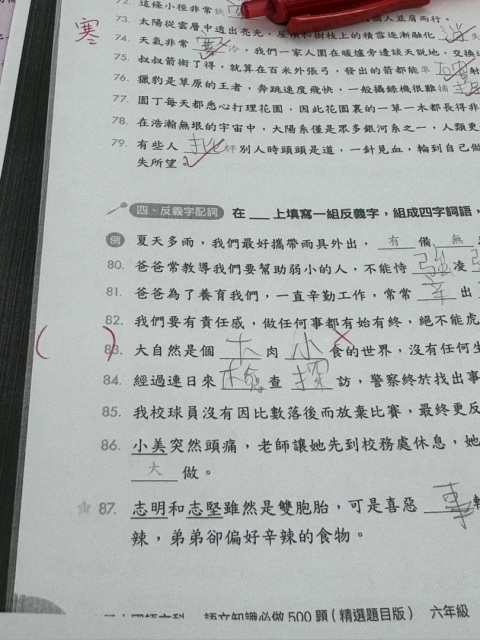 72. 這條小徑非常
73. 太陽從雲層中透出亮光,屋頂和樹枝上的積雪逐漸融化
寒
74. 天氣非常 冷,我們一家人圍在暖爐旁邊談天說地,交換
75. 叔叔箭術了得,就算在百米外張弓,發出的箭都能率 射
76. 獵豹是草原的王者,奔跳速度飛快,一般攝錄機很難捕
77. 園丁每天都悉心打理花園,因此花園裏的一草一木都長得非
78. 在浩瀚無垠的宇宙中,太陽系僅是眾多銀河系之一,人類更
79. 有些人 批 評別人時頭頭是道,一針見血,輪到自己做
失所望
四、反義字配詞 在 上填寫一組反義字,組成四字詞語,
例 夏天多雨,我們最好攜帶雨具外出, 有 備 無
80. 爸爸常教導我們要幫助弱小的人,不能恃 強 凌
81. 爸爸為了養育我們,一直辛勤工作,常常 辛 出
82. 我們要有責任感,做任何事都有始有終,絕不能虎
( )
83. 大自然是個 大 肉 小 食的世界,沒有任何生
84. 經過連日來 檢 查 探 訪,警察終於找出事
85. 我校球員沒有因比數落後而放棄比賽,最終更反
86. 小美突然頭痛,老師讓她先到校務處休息,她
大 做。
87. 志明和志堅雖然是雙胞胎,可是喜惡
辣,弟弟卻偏好辛辣的食物。
語文知識必做500題(精選題目版) 六年級